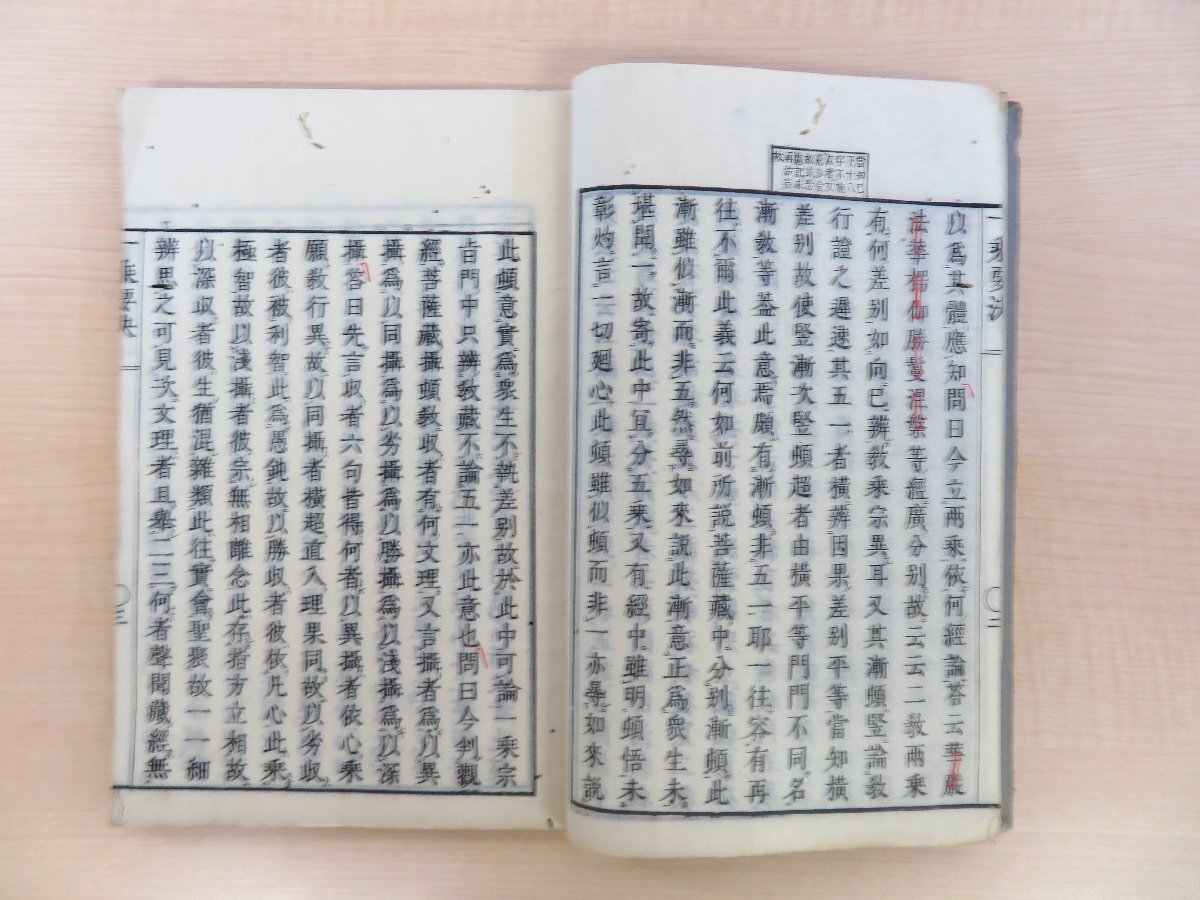 以爲其體應知問曰今立兩乘依何經論答云華嚴
法華楞伽勝鬘涅槃等經廣分別故云云二敎兩乘
有何差別如向已辨敎乘宗異耳又其漸頓竪論敎
行證之遲速其五一者橫辨因果差別平等當知橫
差別故使竪漸次竪頓超者由橫平等門門不同名
漸敎等蓋此意焉頗有漸頓非五一耶一往容有再
往不爾此義云何如前所説菩薩藏中分別漸頓此
漸雖似漸而非五然尋如來説此漸意正爲衆生未
堪開一故寄此中冝分五乘又有經中雖明頓悟未
彰灼言一切廻心此頓雖似頓而非一亦尋如來説
一乘要決
二
此頓意實爲衆生不執差別故於此中可論一乘宗
旨門中只辨敎藏不論五一亦此意也問曰今判觀
經菩薩藏攝頓敎收者有何文理又言攝者爲以異
攝爲以同攝爲以劣攝爲以勝攝爲以淺攝爲以深
攝答曰先言收者六句皆得何者以異攝者依心乘
願敎行異故以同攝者橫超直入理果同故以劣收
者彼被利智此爲愚鈍故以勝收者彼依凡心此乘
極智故以淺攝者彼宗無相離念此存指方立相故
以深收者彼生猶混雜類此往實會聖聚故一一細
辨思之可見次文理者且舉二三何者聲聞藏經無
一乘要決
三